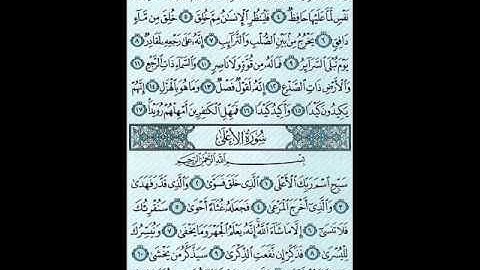 نَفْسٍ لَّمَّا عَلَيْهَا حَافِظٌ ٤ فَلْيَنظُرِ الْإِنسَٰنُ مِمَّ خُلِقَ ٥ خُلِقَ مِن مَّاءٍ
دَافِقٍ ٦ يَخْرُجُ مِنۢ بَيْنِ الصُّلْبِ وَالتَّرَائِبِ ٧ إِنَّهُ عَلَىٰ رَجْعِهِ لَقَادِرٌ ٨
يَوْمَ تُبْلَى السَّرَائِرُ ٩ فَمَا لَهُ مِن قُوَّةٍ وَلَا نَاصِرٍ ١٠ وَالسَّمَاءِ ذَاتِ الرَّجْعِ ١١
وَالْأَرْضِ ذَاتِ الصَّدْعِ ١٢ إِنَّهُ لَقَوْلٌ فَصْلٌ ١٣ وَمَا هُوَ بِالْهَزْلِ ١٤ إِنَّهُمْ
يَكِيدُونَ كَيْدًا ١٥ وَأَكِيدُ كَيْدًا ١٦ فَمَهِّلِ الْكَٰفِرِينَ أَمْهِلْهُمْ رُوَيْدًا ١٧
سُورَةُ الْأَعْلَىٰ
بِسْمِ اللَّهِ الرَّحْمَٰنِ الرَّحِيمِ
سَبِّحِ اسْمَ رَبِّكَ الْأَعْلَى ١ الَّذِي خَلَقَ فَسَوَّىٰ ٢ وَالَّذِي قَدَّرَ فَهَدَىٰ
٣ وَالَّذِي أَخْرَجَ الْمَرْعَىٰ ٤ فَجَعَلَهُ غُثَاءً أَحْوَىٰ ٥ سَنُقْرِئُكَ
فَلَا تَنسَىٰ ٦ إِلَّا مَا شَاءَ اللَّهُ إِنَّهُ يَعْلَمُ الْجَهْرَ وَمَا يَخْفَىٰ ٧ وَنُيَسِّرُكَ
لِلْيُسْرَىٰ ٨ فَذَكِّرْ إِن نَّفَعَتِ الذِّكْرَىٰ ٩ سَيَذَّكَّرُ مَن يَخْشَىٰ ١٠